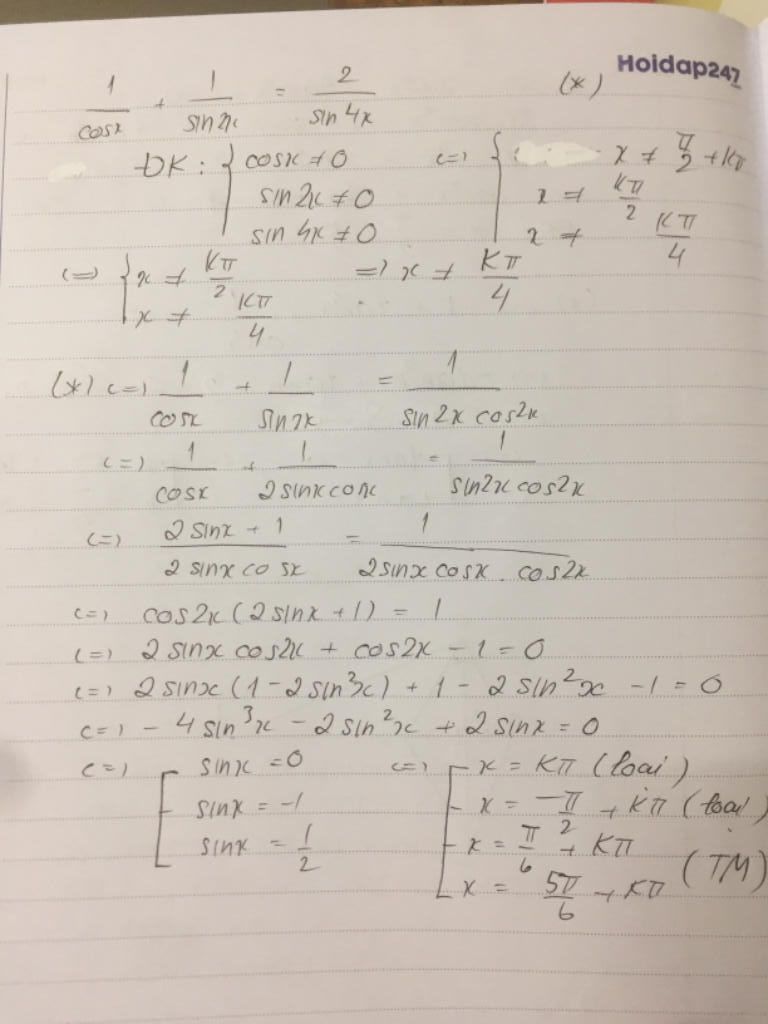 Hoidap247
1/cosx + 1/sin2x = 2/sin4x (*)
ĐK: { cosx ≠ 0 <=> { x ≠ π/2 + kπ
sin2x ≠ 0 x ≠ kπ/2
sin4x ≠ 0 x ≠ kπ/4
<=> { x ≠ kπ/2 => x ≠ kπ/4
x ≠ kπ/4
(*) <=> 1/cosx + 1/sin2x = 1/(sin2x cos2x)
<=> 1/cosx + 1/(2sinx cosx) = 1/(sin2x cos2x)
<=> (2sinx + 1)/(2sinx cosx) = 1/(2sinx cosx . cos2x)
<=> cos2x (2sinx + 1) = 1
<=> 2sinx cos2x + cos2x - 1 = 0
<=> 2sinx (1 - 2sin²x) + 1 - 2sin²x - 1 = 0
<=> - 4sin³x - 2sin²x + 2sinx = 0
<=> [ sinx = 0 <=> [ x = kπ (loại)
sinx = -1 x = -π/2 + kπ (loại)
sinx = 1/2 x = π/6 + kπ
x = 5π/6 + kπ (TM)